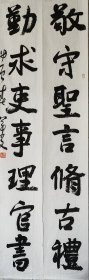 敬守聖言脩古禮
勤求吏事理官書